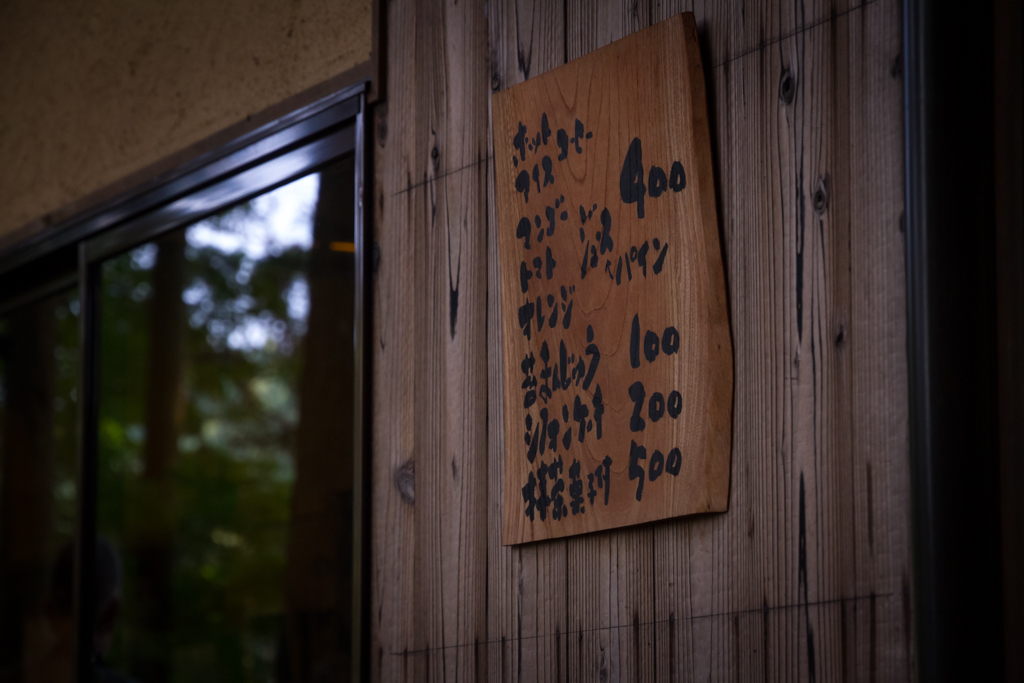 ホット コーヒー
アイス 400
マンゴー ジュース
トマト パイン
オレンジ
まんじゅう 100
シフォンケーキ 200
抹茶菓子付 500